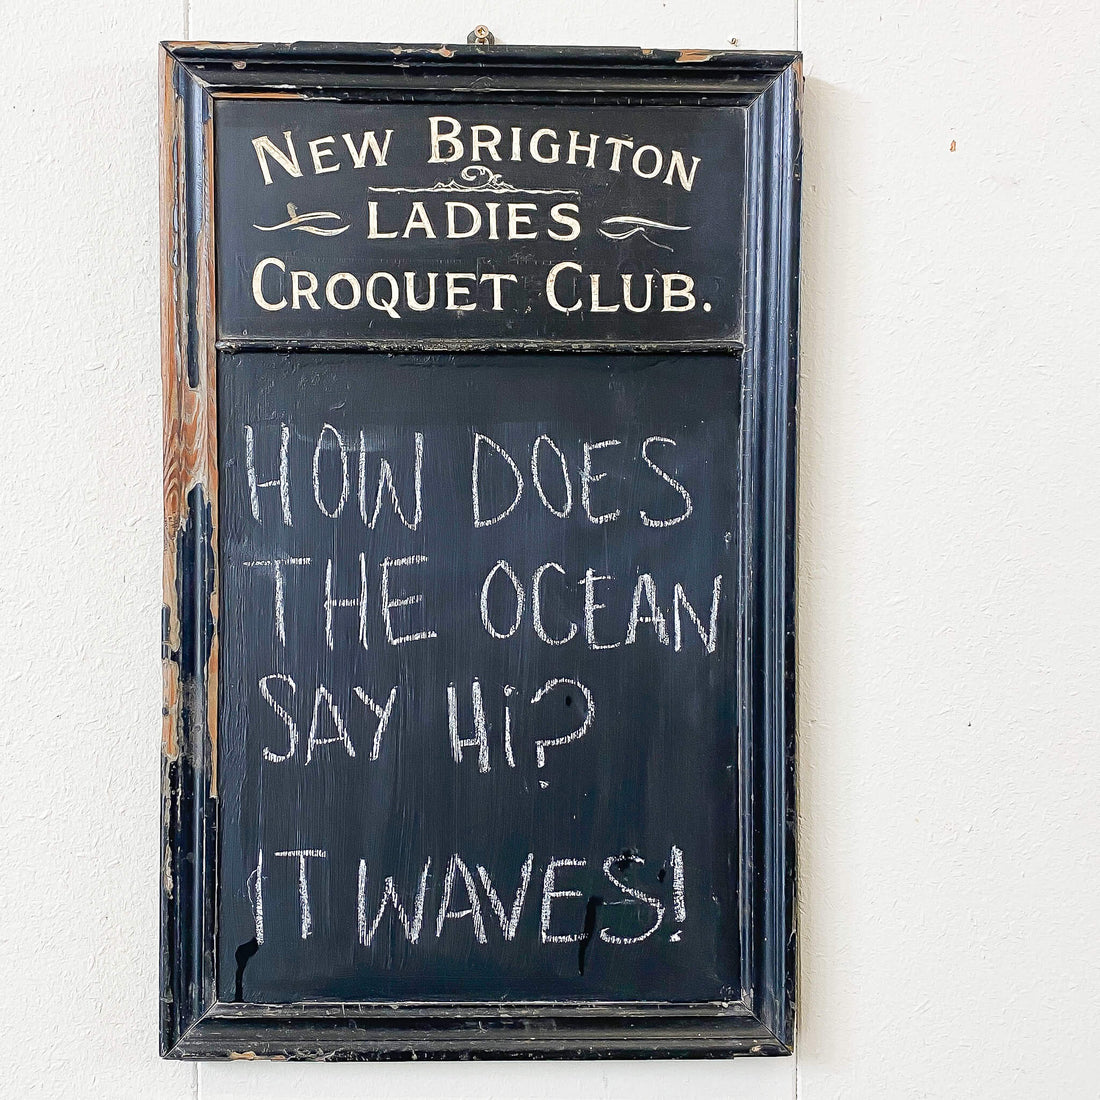 NEW BRIGHTON
LADIES
CROQUET CLUB.
HOW DOES
THE OCEAN
SAY Hi?
IT WAVES!